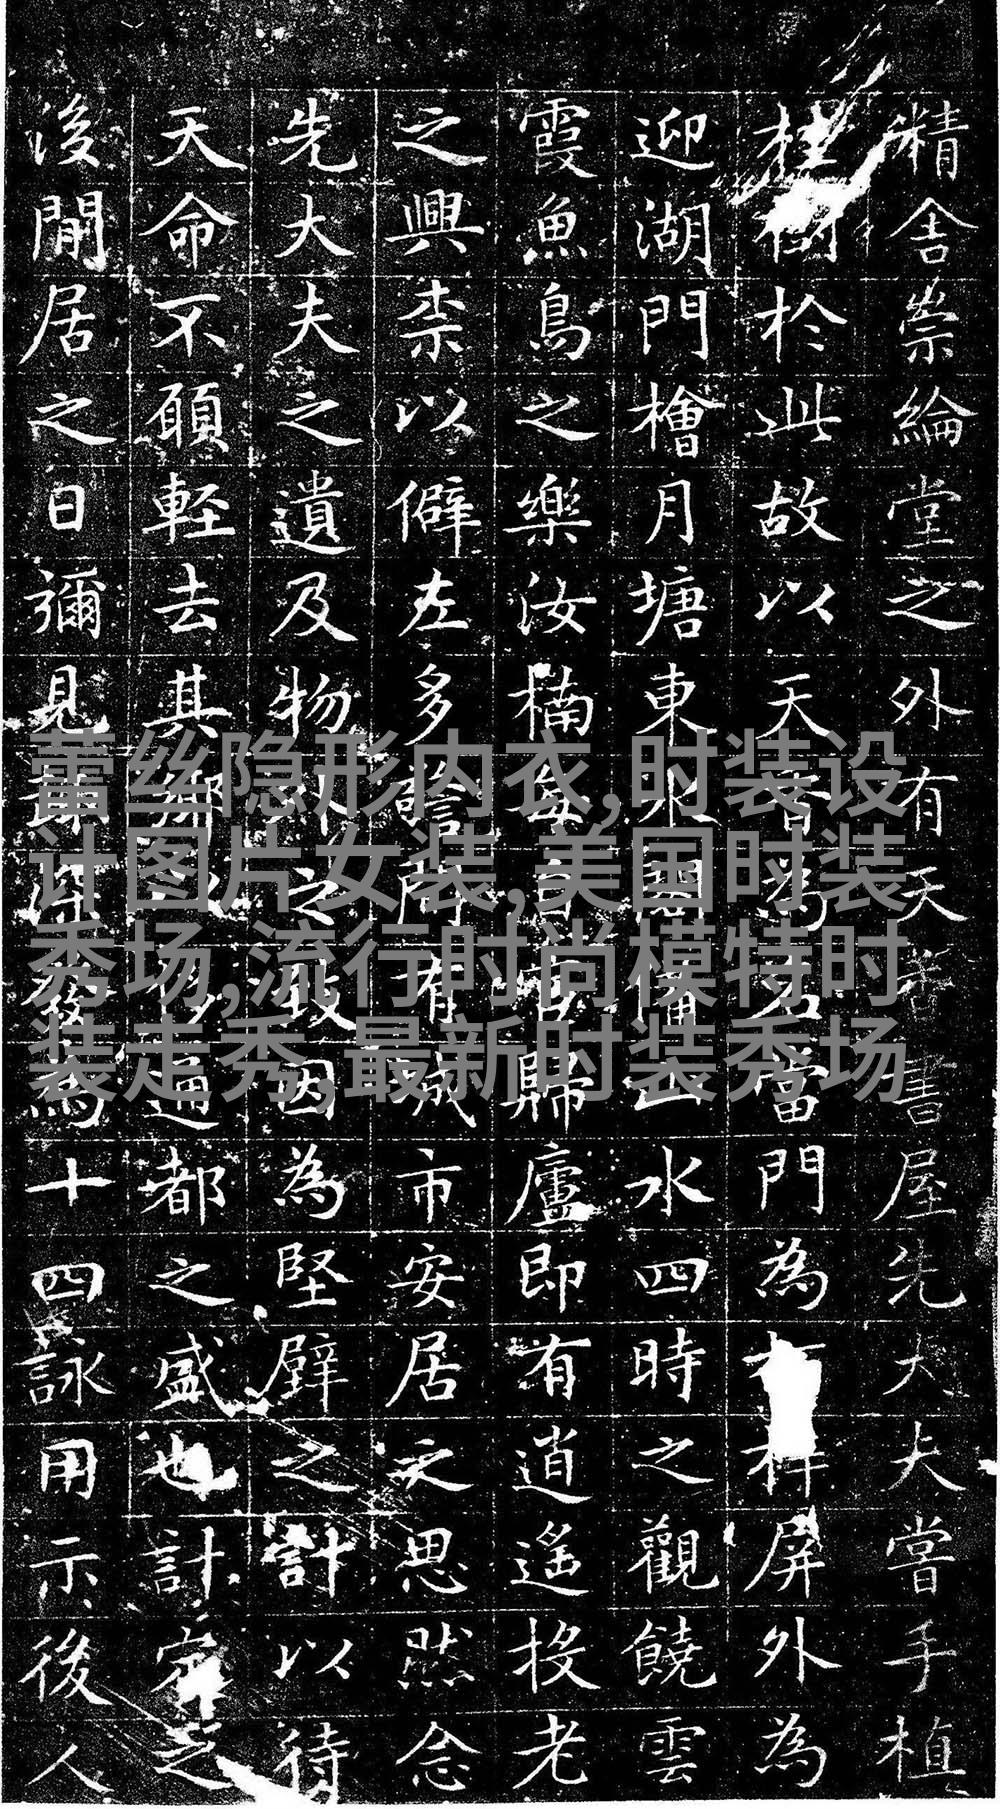 精舍崇綸堂之外有天香書屋先大夫嘗手植
桂樹於此故以天香為名當門為屏外為
迎湖門檜月塘東水四時之觀饒雲
霞魚鳥之樂汝楠每歸廬即有逍遙投老
之興柰以僻左多居有城市安居之思然念
先大夫之遺及物之故因為堅壁之計以待
天命不願輕去其鄉通都之盛也計定之
後閒居之日彌見發為十四詠用示後人
蕾丝隐形内衣,时装设
计图片女装,美国时装
秀场,流行时尚模特时
装走秀,最新时装秀场